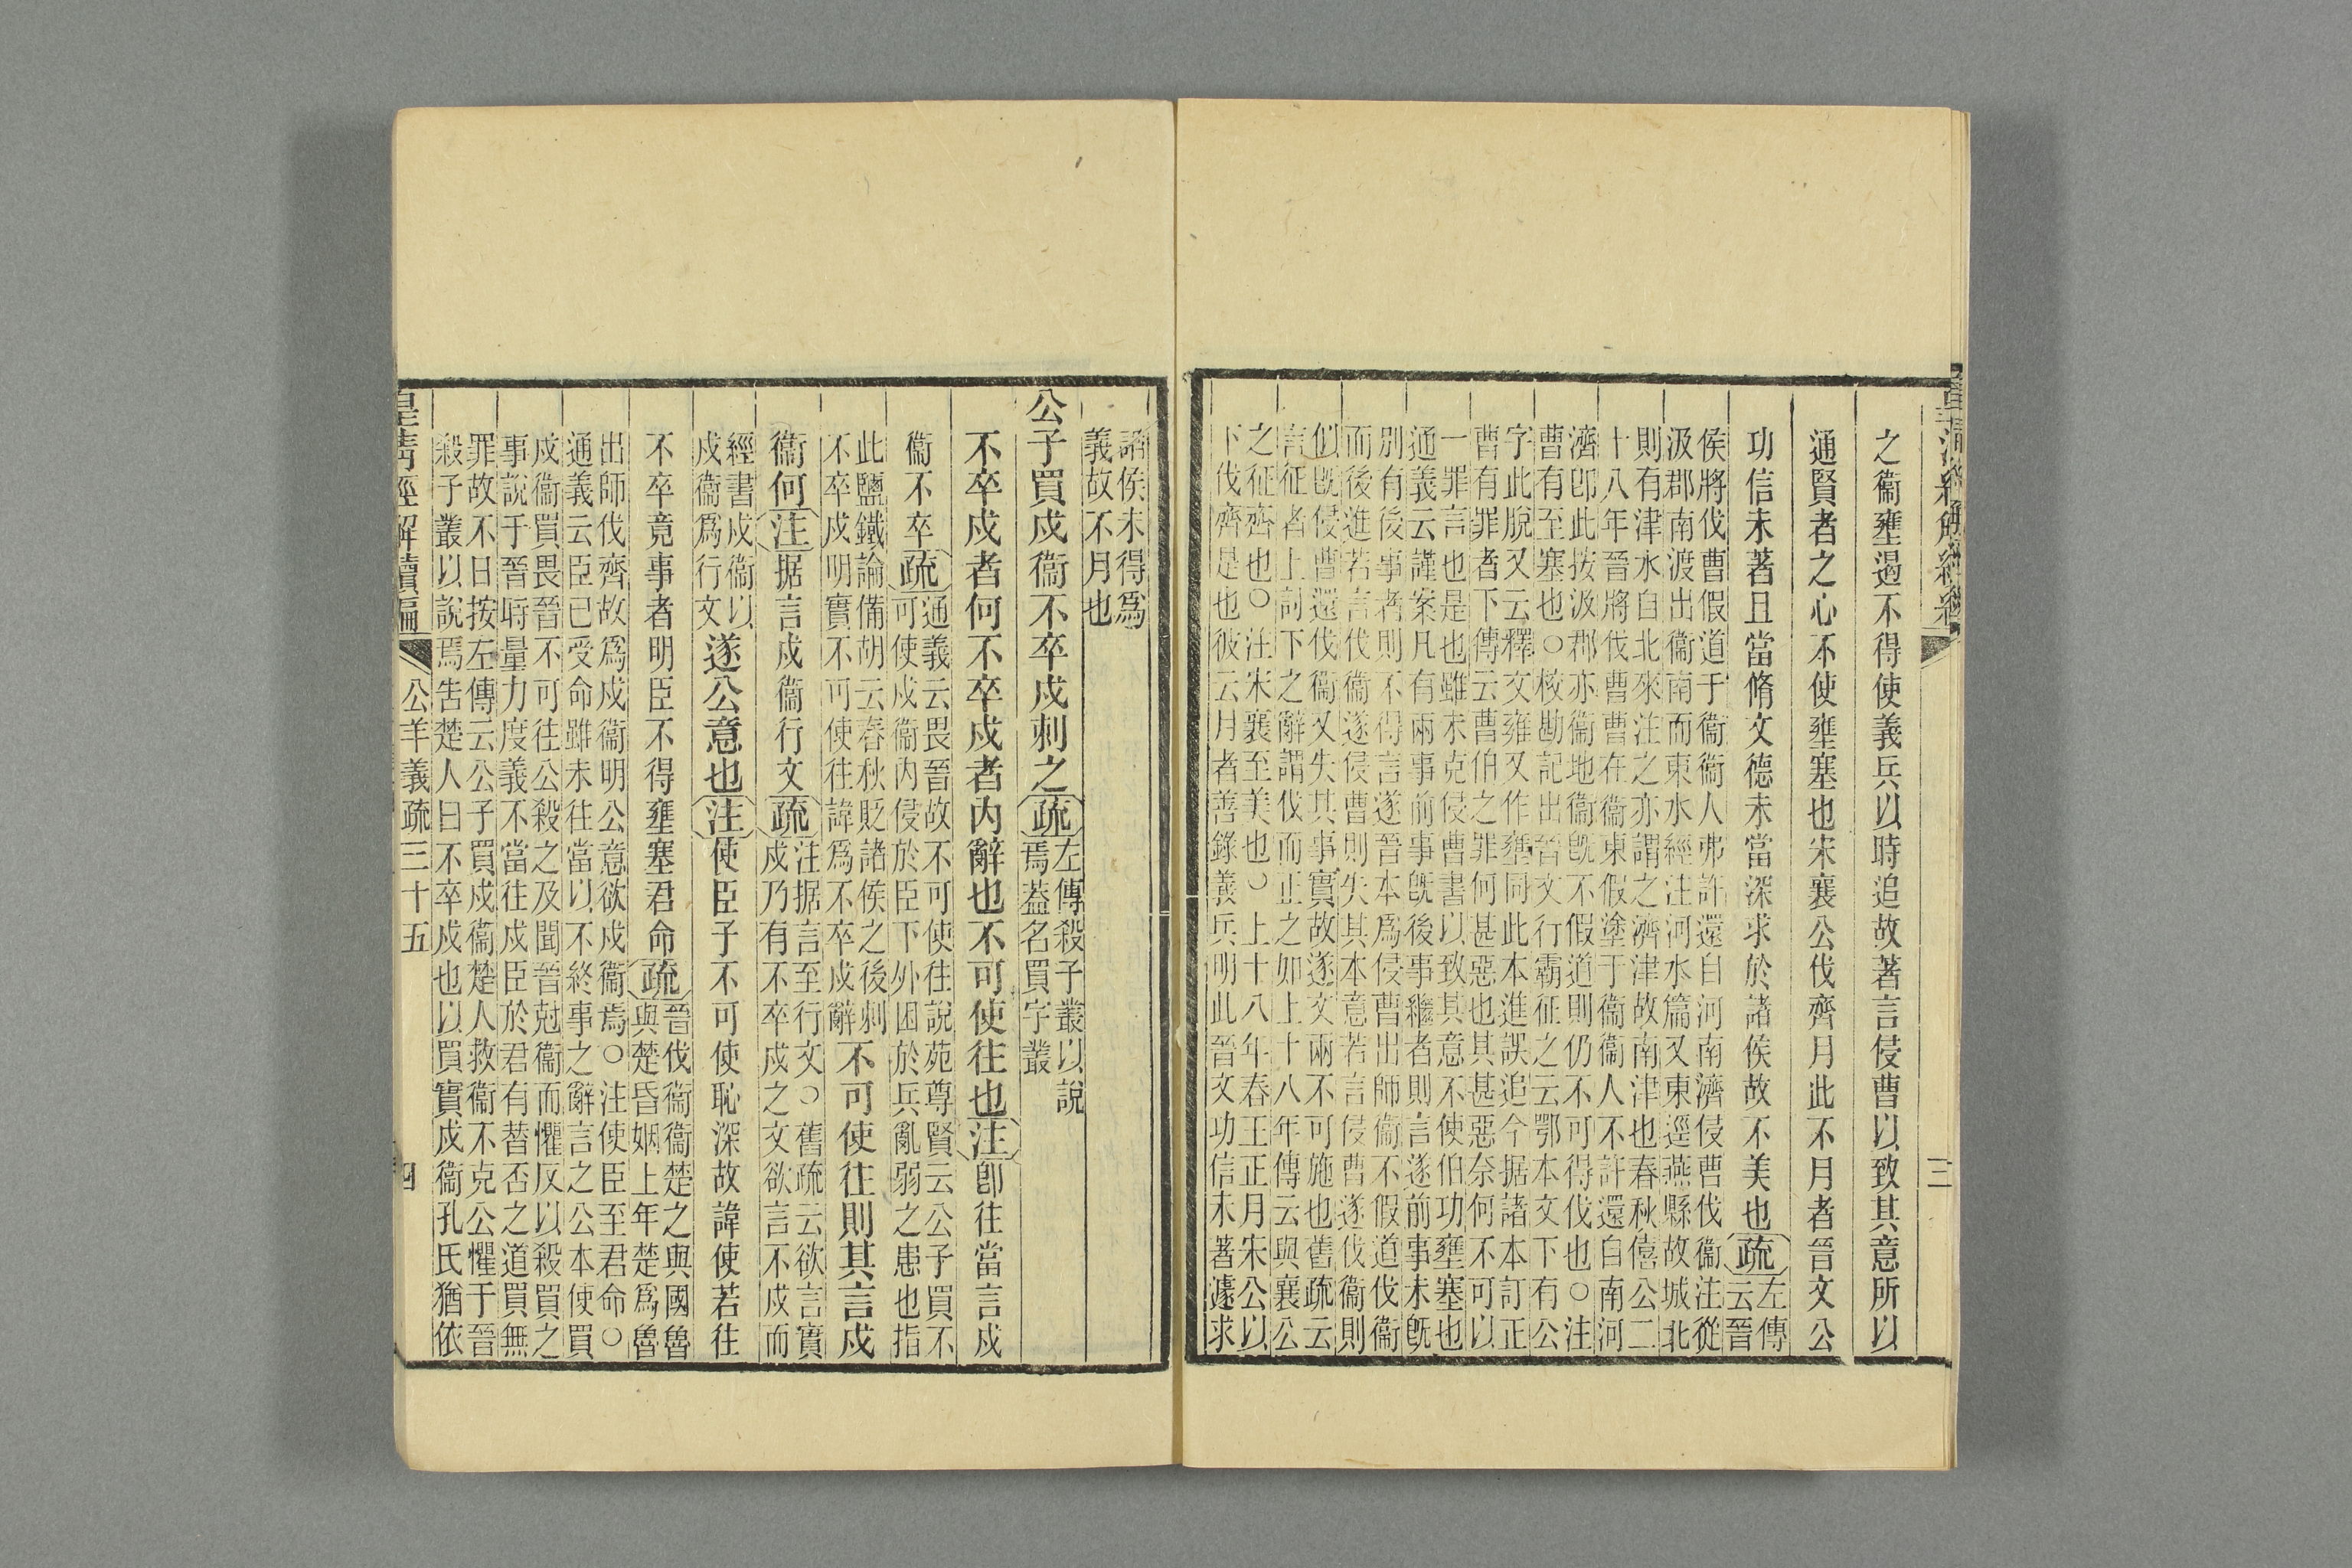 皇清經解續編
三
之衞壅遏不得使義兵以時追故著言侵曹以致其意所以
通賢者之心不使壅塞也宋襄公伐齊月此不月者晉文公
功信未著且當脩文德未當深求於諸侯故不美也疏
左傳
云晉
侯將伐曹假道于衞衞人弗許還自河南濟侵曹伐衞注從
汲郡南渡出衞南而東水經注河水篇又東逕燕縣故城北
則有津水自北來注之亦謂之濟津故南津也春秋僖公二
十八年晉將伐曹曹在衞東假塗于衞衞人不許還自南河
濟卽此按汲郡亦衞地衞旣不假道則仍不可得伐也○注
曹有至塞也○校勘記出晉文行霸征之云鄂本文下有公
字此脫又云釋文雍又作壅同此本進誤追今据諸本訂正
曹有罪者下傳云曹伯之罪何甚惡也其甚惡奈何不可以
一罪言也是也雖未克侵曹書以致其意不使伯功壅塞也
通義云謹案凡有兩事前事旣後事繼者則言遂前事未旣
別有後事者則不得言遂晉本爲侵曹出師衞不假道伐衞
而後進若言伐衞遂侵曹則失其本意若言侵曹遂伐衞則
似旣侵曹還伐衞又失其事實故遂文兩不可施也舊疏云
言征者上討下之辭謂伐而正之如上十八年傳云與襄公
之征齊也○注宋襄至美也○上十八年春王正月宋公以
下伐齊是也彼云月者善錄義兵明此晉文功信未著遽求
諸侯未得爲
義故不月也
公子買戍衞不卒戍刺之疏
左傳殺子叢以說
焉蓋名買字叢
不卒戍者何不卒戍者內辭也不可使往也注卽往當言戍
衞不卒疏
通義云畏晉故不可使往說苑尊賢云公子買不
可使戍衞內侵於臣下外困於兵亂弱之患也指
此鹽鐵論備胡云春秋貶諸侯之後刺
不卒戍明實不可使往諱爲不卒戍辭
不可使往則其言戍
衞何注据言戍衞行文疏
注据言至行文○舊疏云欲言實
戍乃有不卒戍之文欲言不戍而
經書戍衞以
戍衞爲行文
遂公意也注使臣子不可使恥深故諱使若往
不卒竟事者明臣不得壅塞君命疏
晉伐衞衞楚之與國魯
與楚昏姻上年楚爲魯
出師伐齊故爲戍衞明公意欲戍衞焉○注使臣至君命○
通義云臣已受命雖未往當以不終事之辭言之公本使買
戍衞買畏晉不可往公殺之及聞晉尅衞而懼反以殺買之
事說于晉時量力度義不當往戍臣於君有替否之道買無
罪故不日按左傳云公子買戍衞楚人救衞不克公懼于晉
殺子叢以說焉告楚人曰不卒戍也以買實戍衞孔氏猶依
皇清經解續編
公羊義疏三十五
四